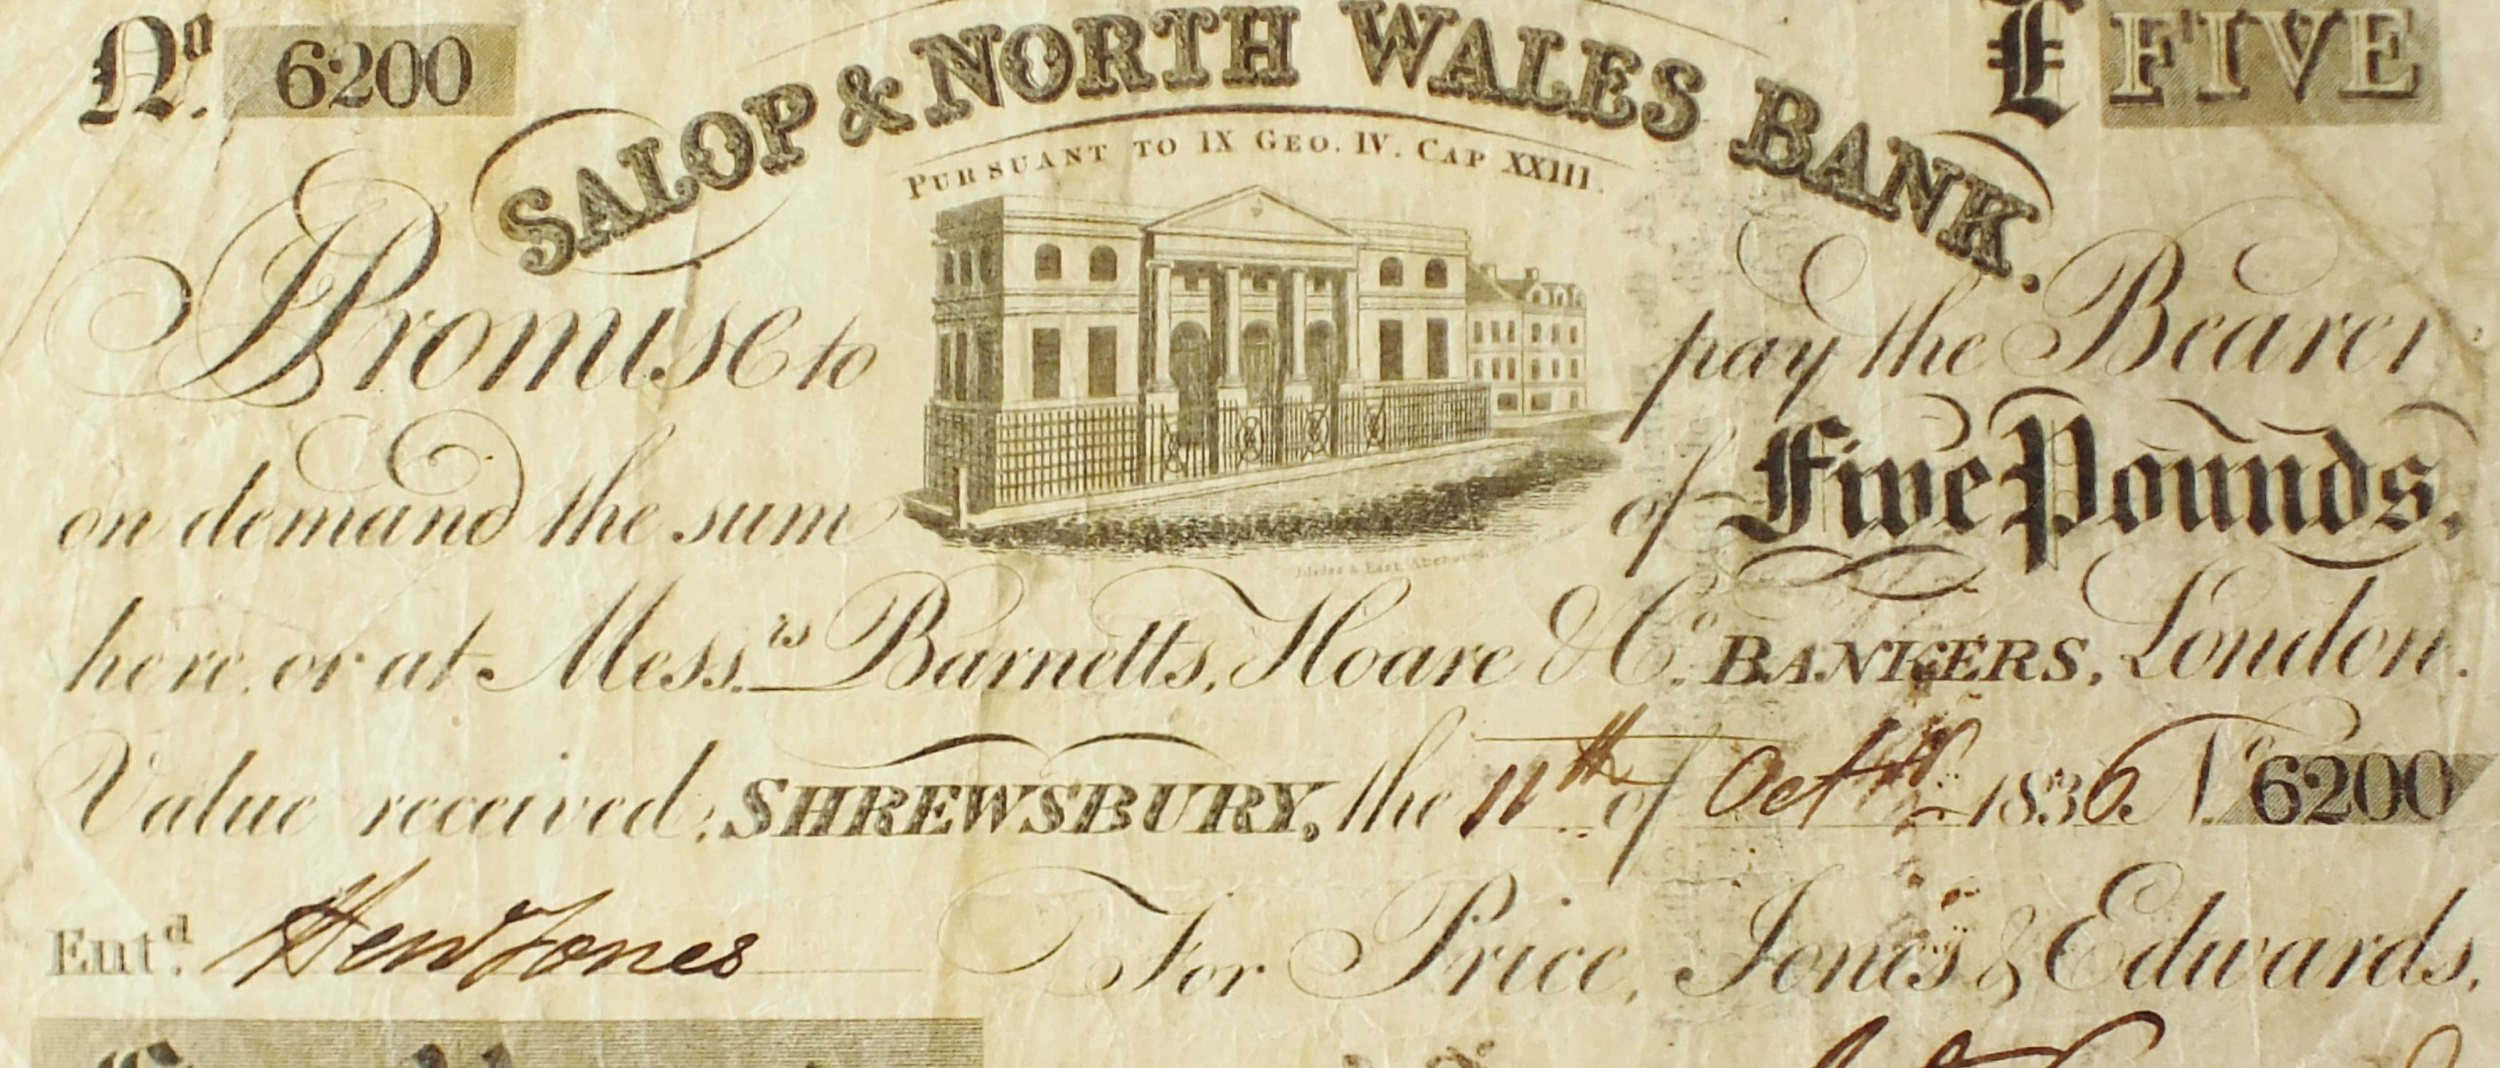 No. 6200 £ FIVE
SALOP & NORTH WALES BANK.
PURSUANT TO IX GEO. IV. CAP XXIII.
I Promise to pay the Bearer
on demand the sum of Five Pounds.
Blades & East, Abchurch
here, or at Messrs. Barnetts, Hoare & Co. BANKERS, London.
Value received, SHREWSBURY, the 11th of Octr 1836 No. 6200
Entd. Hen Jones For Price, Jones & Edwards.